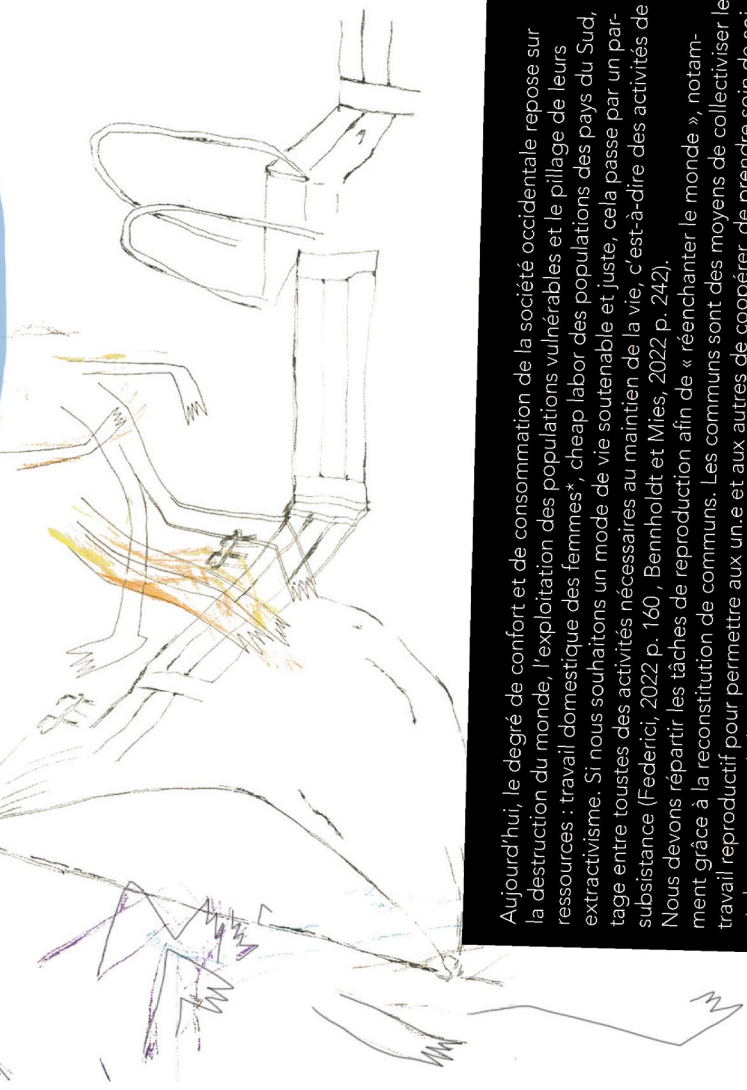 Aujourd'hui, le degré de confort et de consommation de la société occidentale repose sur
la destruction du monde, l'exploitation des populations vulnérables et le pillage de leurs
ressources : travail domestique des femmes*, cheap labor des populations des pays du Sud,
extractivisme. Si nous souhaitons un mode de vie soutenable et juste, cela passe par un par-
tage entre toustes des activités nécessaires au maintien de la vie, c'est-à-dire des activités de
subsistance (Federici, 2022 p. 160 , Bennholdt et Mies, 2022 p. 242).
Nous devons répartir les tâches de reproduction afin de « réenchanter le monde », notam-
ment grâce à la reconstitution de communs. Les communs sont des moyens de collectiviser le
travail reproductif pour permettre aux un.e et aux autres de coopérer, de prendre soin de soi